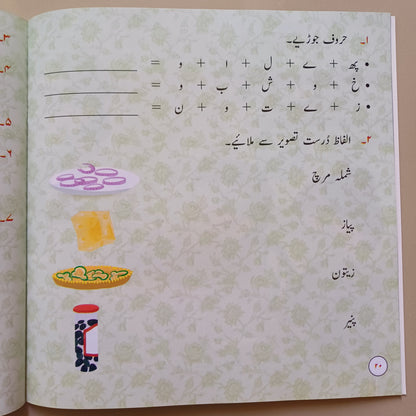 ۱۔ حروف جوڑیے۔
• پھ + ے + ل + ا + و =
• خ + و + ش + ب + و =
• ز + ے + ت + و + ن =
۲۔ الفاظ دُرست تصویر سے ملائیے۔
شملہ مرچ
پیاز
زیتون
پنیر
۳۔
۴۔
۵۔
۶۔
۷۔